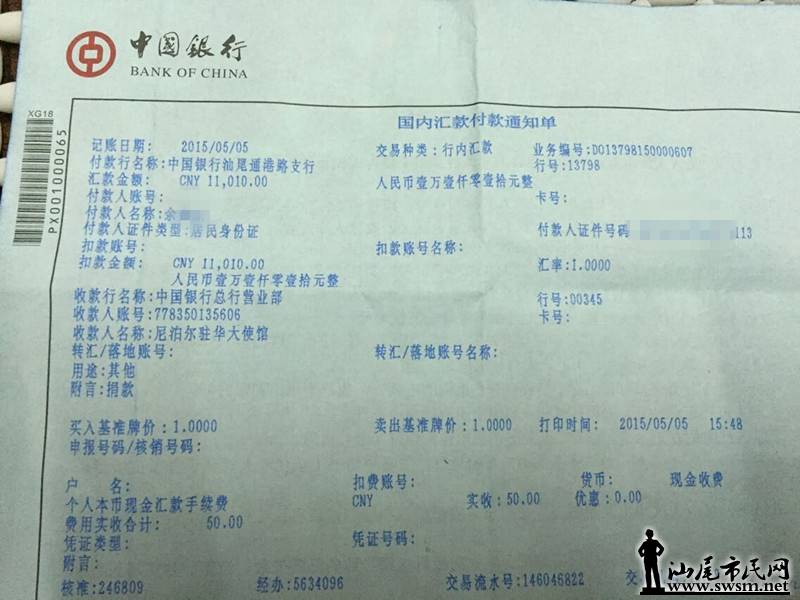 中国银行
BANK OF CHINA
XG18
PX001000065
国内汇款付款通知单
记账日期: 2015/05/05 交易种类:行内汇款 业务编号:DO13798150000607
付款行名称:中国银行汕尾通港路支行 行号:13798
汇款金额: CNY 11,010.00 人民币壹万壹仟零壹拾元整
付款人账号: 卡号:
付款人名称:余
付款人证件类型:居民身份证 付款人证件号码 113
扣款账号: 扣款账号名称:
扣款金额: CNY 11,010.00 汇率:1.0000
人民币壹万壹仟零壹拾元整
收款行名称:中国银行总行营业部 行号:00345
收款人账号:778350135606 卡号:
收款人名称:尼泊尔驻华大使馆
转汇/落地账号: 转汇/落地账号名称:
用途:其他
附言:捐款
买入基准牌价:1.0000 卖出基准牌价:1.0000 打印时间: 2015/05/05 15:48
申报号码/核销号码:
户 名: 扣费账号: 货币: 现金收费
个人本币现金汇款手续费 CNY 实收:50.00 优惠:0.00
费用实收合计: 50.00
凭证类型: 凭证号码:
附言:
核准:246809 经办:5634096 交易流水号:146046822 交
汕尾市民网
www.swsm.net